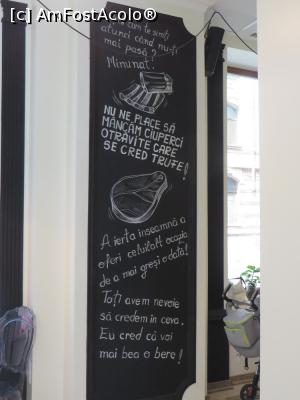 [c] AmFostAcolo®
cum te simți
atunci când nu-ți
mai pasă?
Minunat!
NU NE PLACE SĂ
MÂNCĂM CIUPERCI
OTRĂVITE CARE
SE CRED TRUFE!
A ierta înseamnă a
oferi celuilalt ocazia
de a mai greși o dată!
Toți avem nevoie
să credem în ceva.
Eu cred că voi
mai bea o bere!